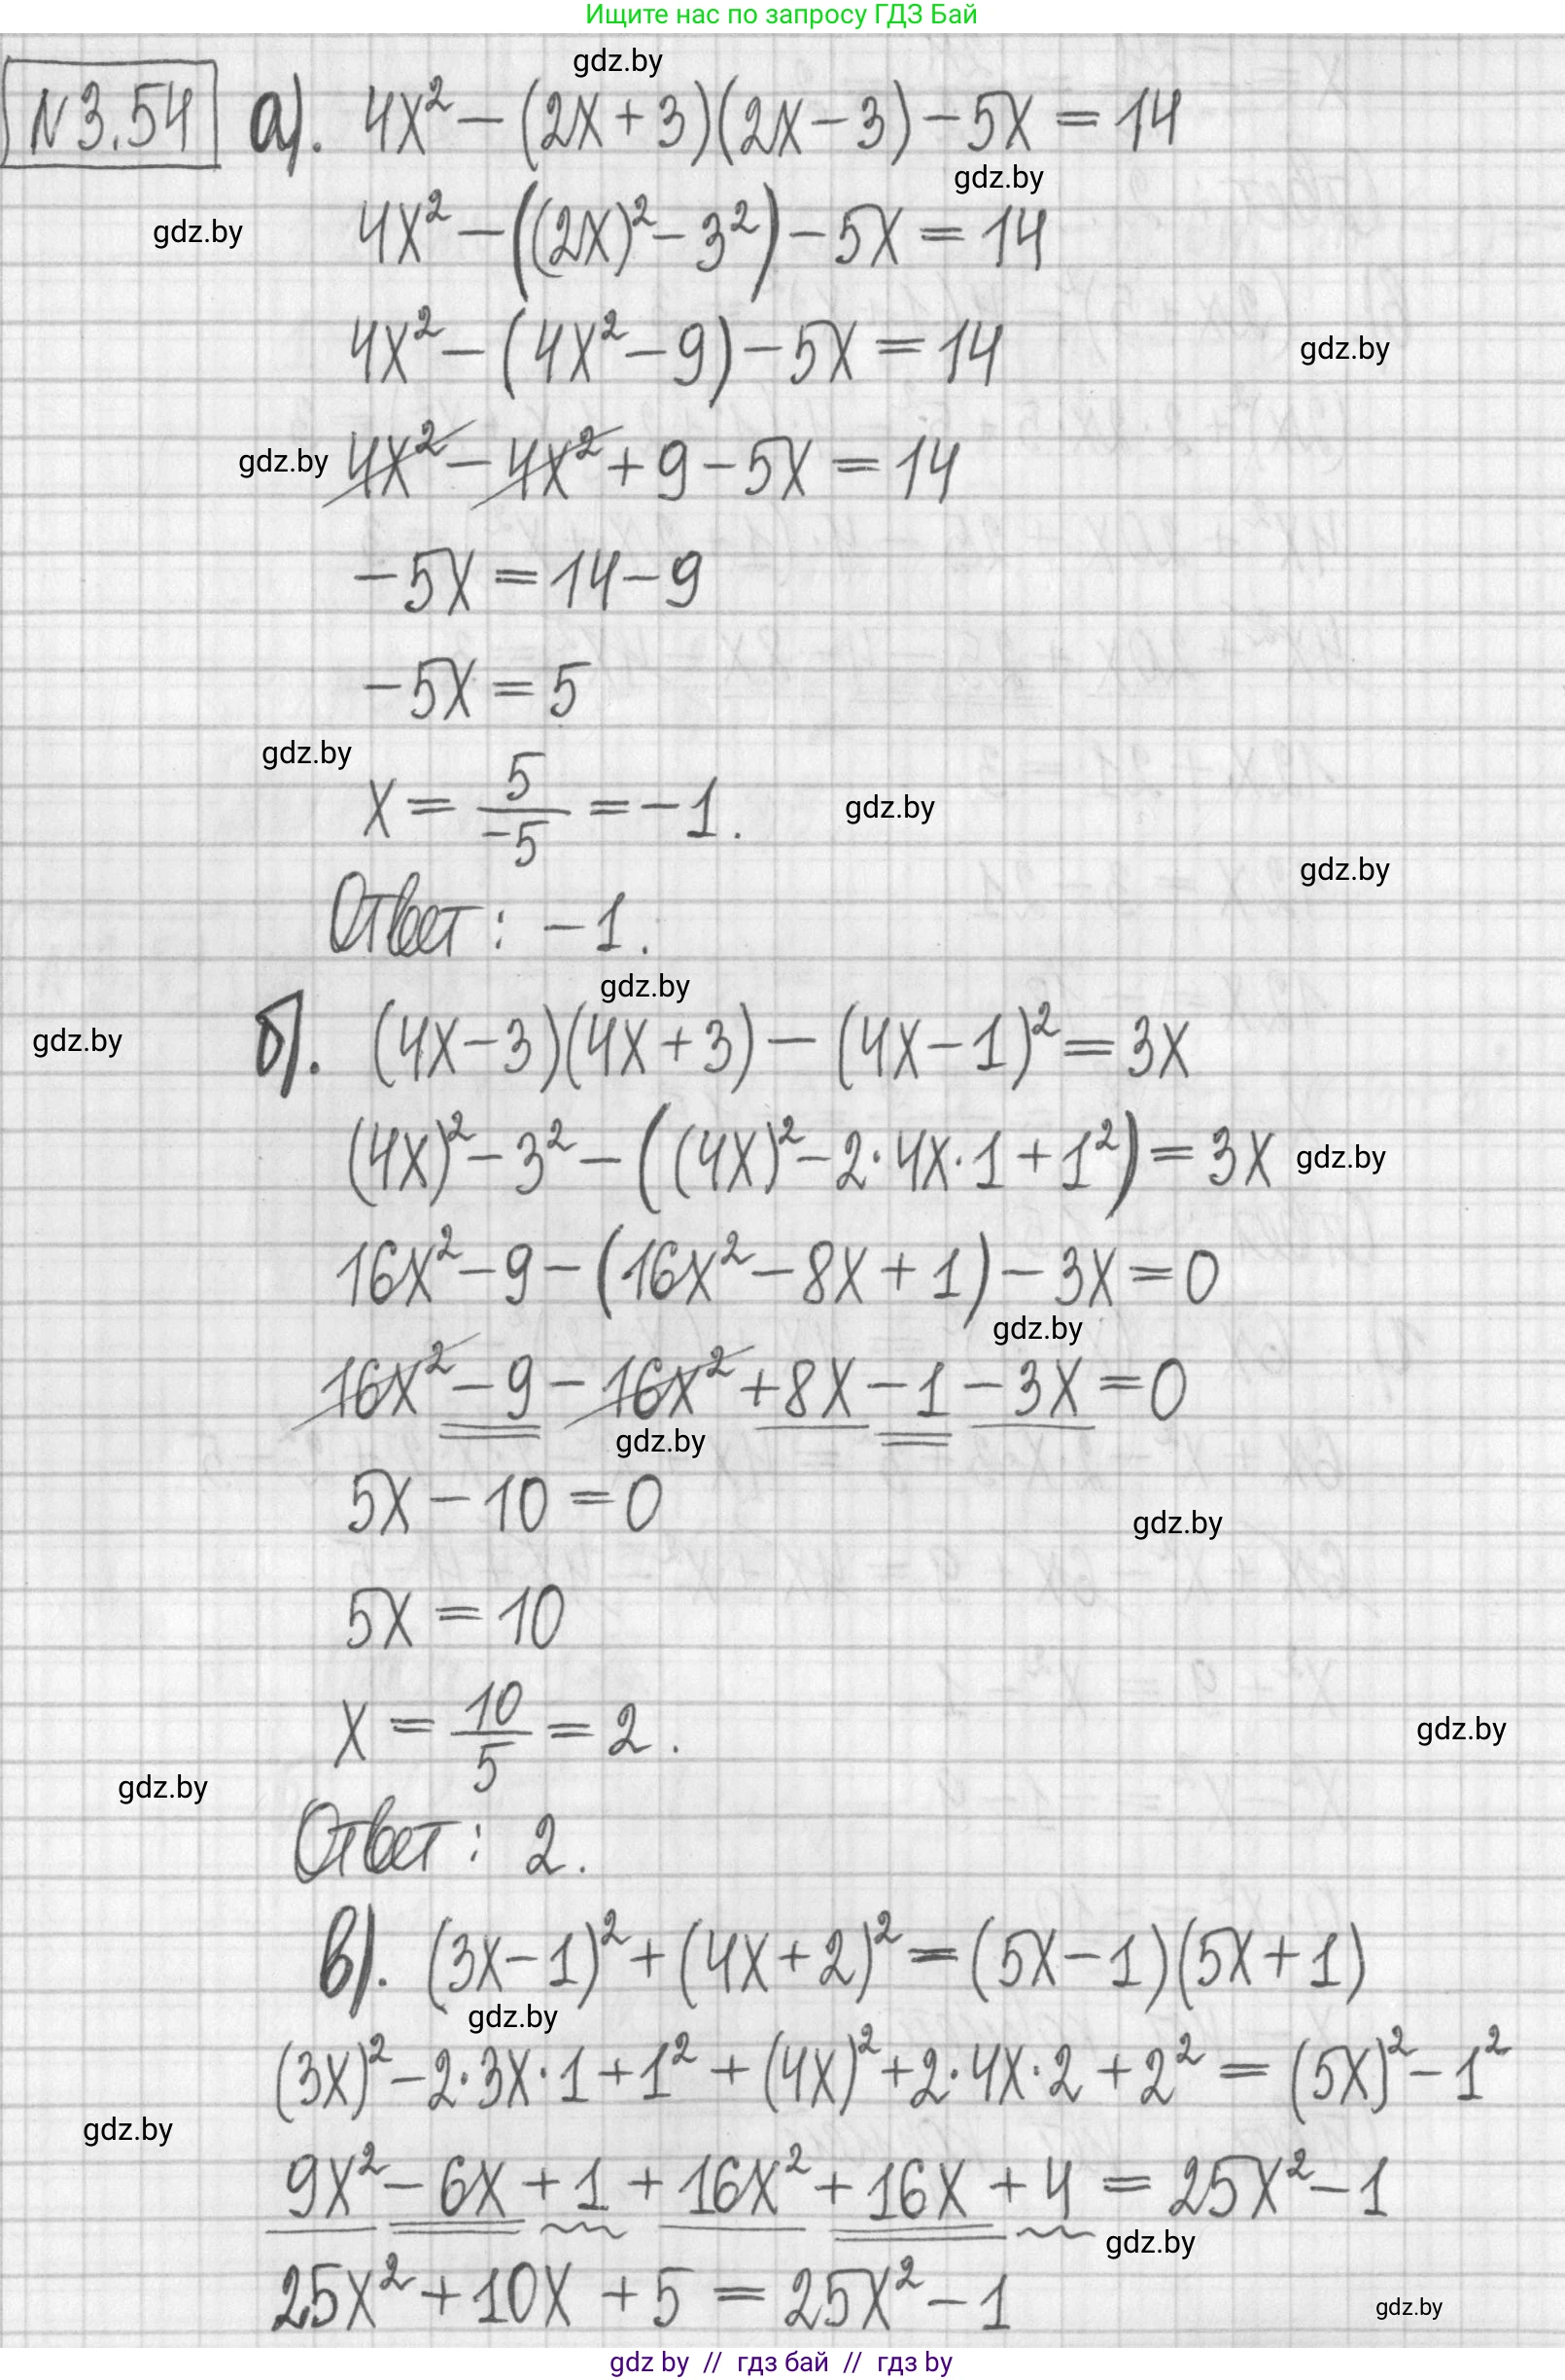 Ищите нас по запросу ГДЗ Бай
gdz.by
N3.54 а). 4x² − (2x + 3)(2x − 3) − 5x = 14
gdz.by
gdz.by 4x² − ((2x)² − 3²) − 5x = 14
4x² − (4x² − 9) − 5x = 14 gdz.by
gdz.by 4x² − 4x² + 9 − 5x = 14
−5x = 14 − 9
−5x = 5
gdz.by
x = 5/−5 = −1. gdz.by
gdz.by
Ответ: −1.
gdz.by
gdz.by б). (4x − 3)(4x + 3) − (4x − 1)² = 3x
(4x)² − 3² − ((4x)² − 2·4x·1 + 1²) = 3x gdz.by
16x² − 9 − (16x² − 8x + 1) − 3x = 0
gdz.by
16x² − 9 − 16x² + 8x − 1 − 3x = 0
gdz.by
5x − 10 = 0
gdz.by
5x = 10
x = 10/5 = 2. gdz.by
gdz.by
Ответ: 2.
в). (3x − 1)² + (4x + 2)² = (5x − 1)(5x + 1)
gdz.by
(3x)² − 2·3x·1 + 1² + (4x)² + 2·4x·2 + 2² = (5x)² − 1²
gdz.by
9x² − 6x + 1 + 16x² + 16x + 4 = 25x² − 1
gdz.by
25x² + 10x + 5 = 25x² − 1
gdz.by
gdz by // гдз бай // gdz by